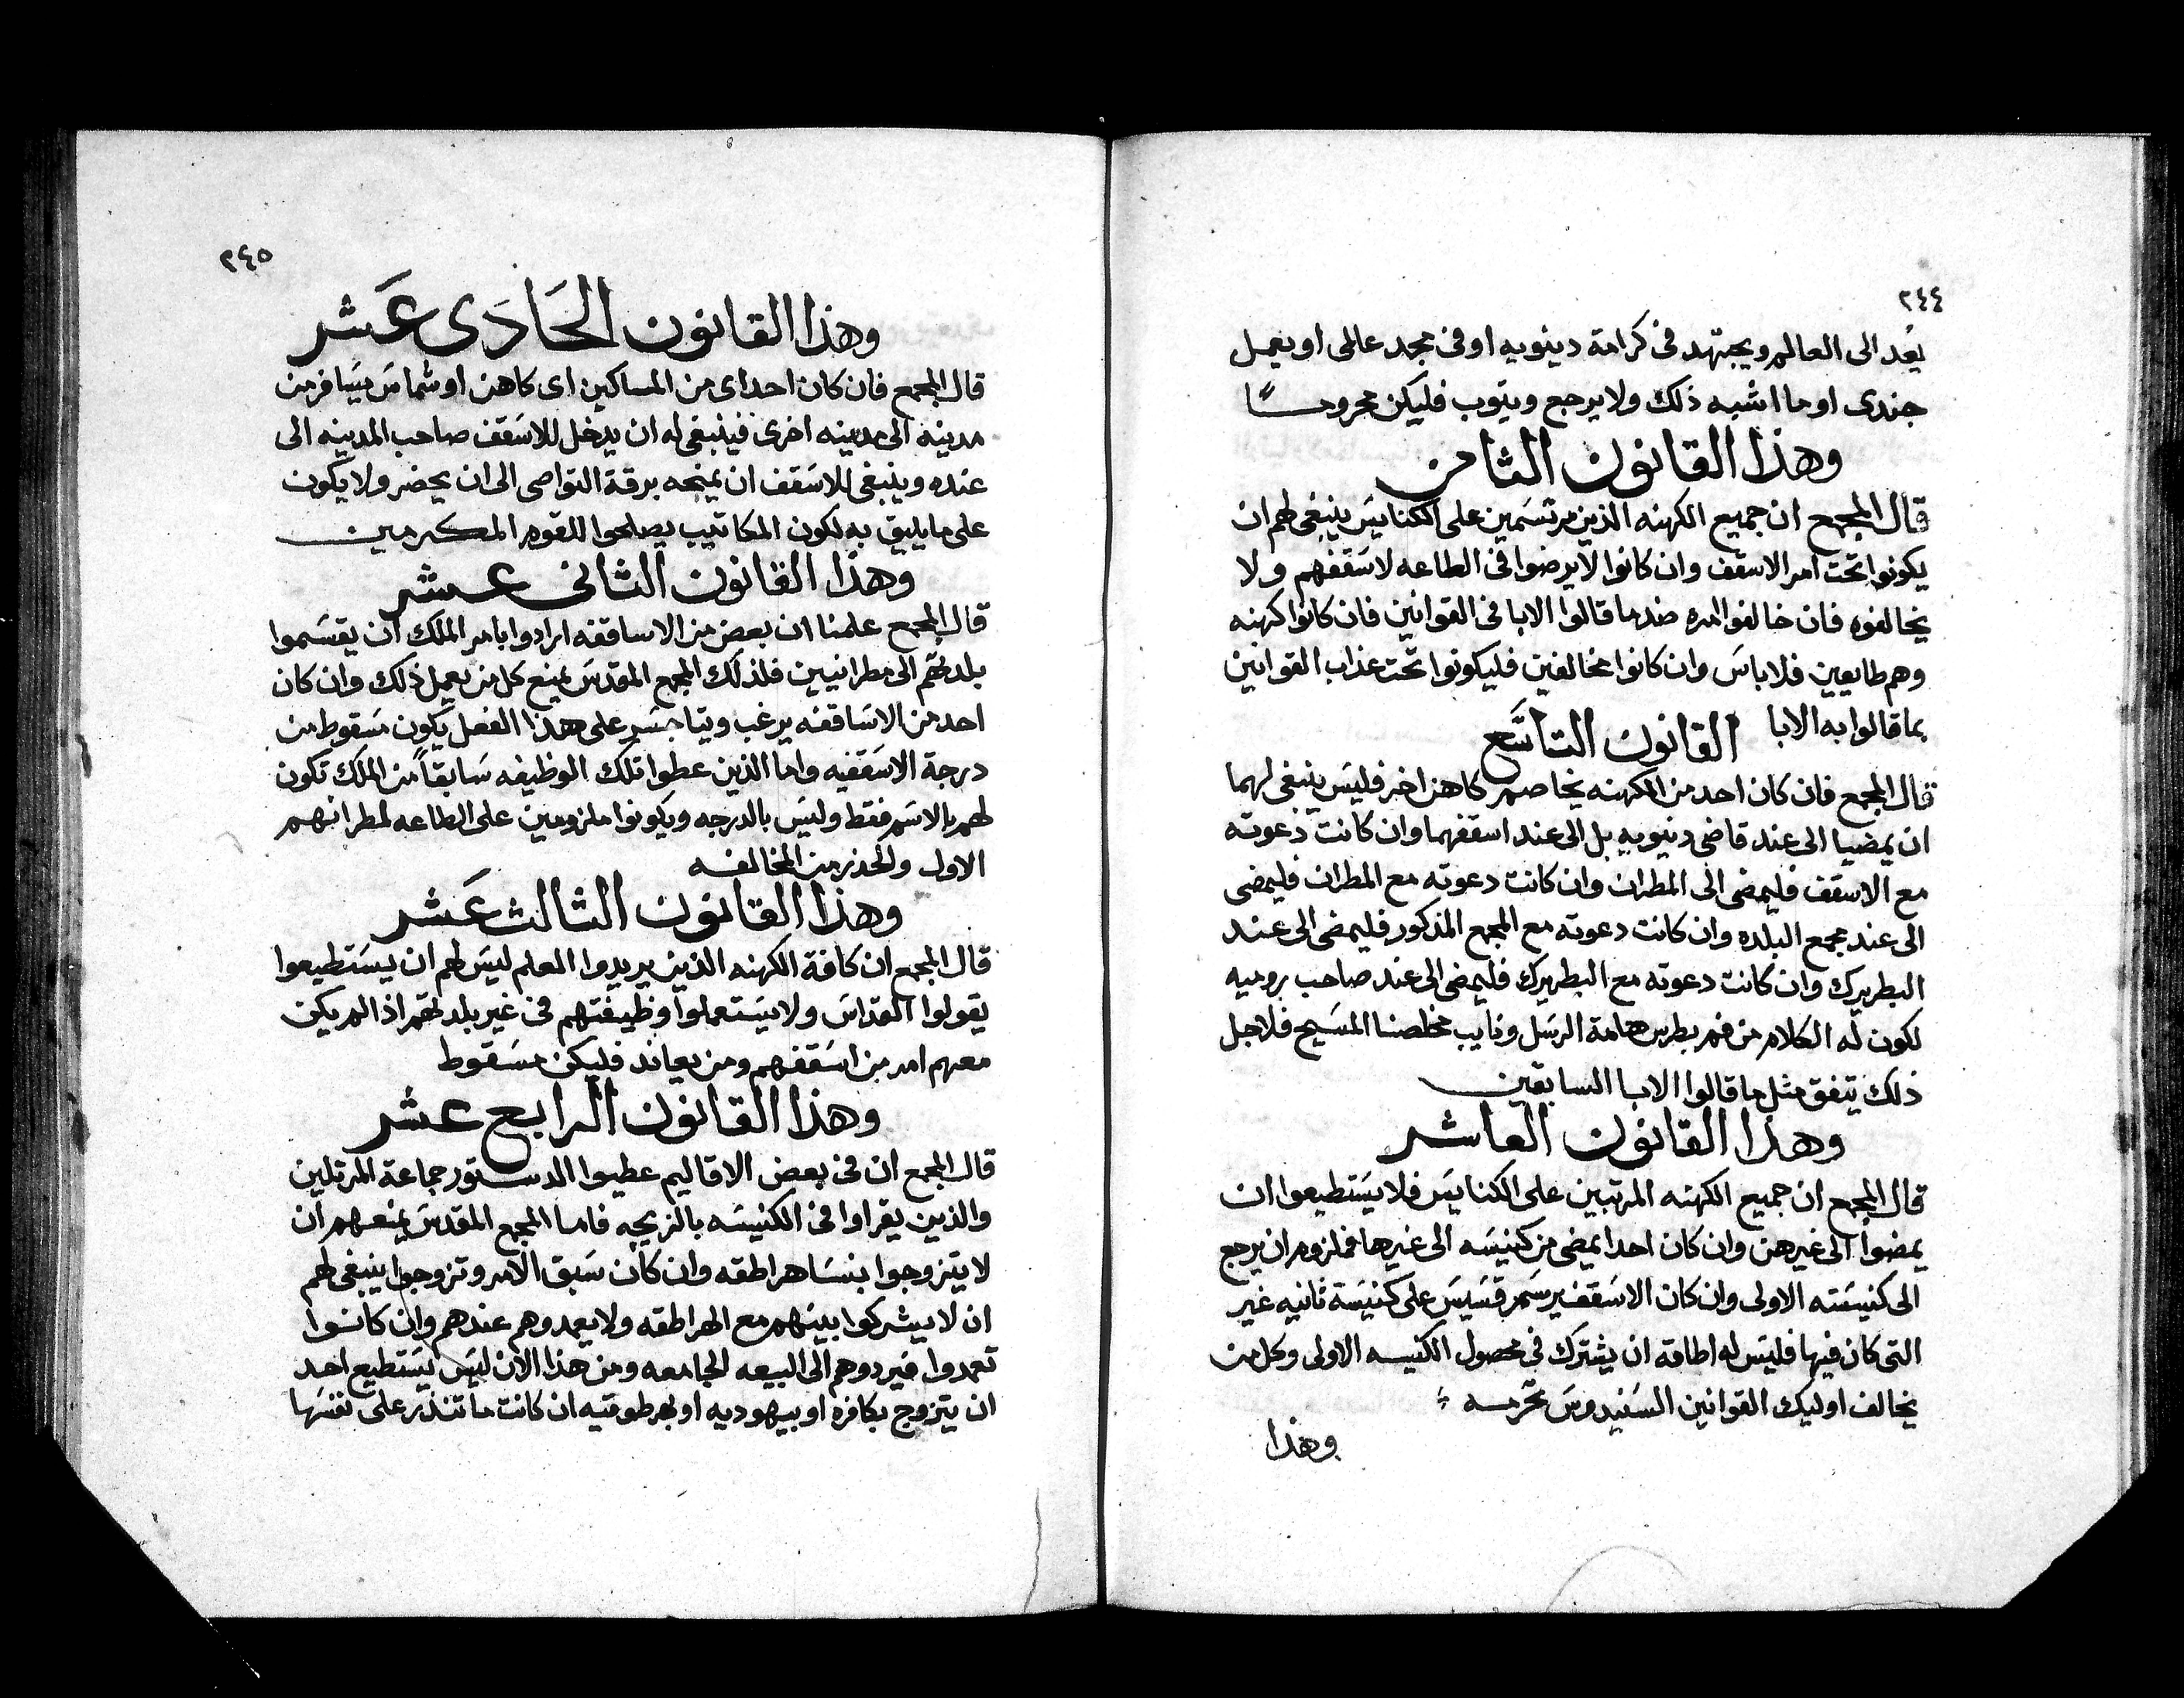 ٢٤٤
يعد الى العالم ويجتهد فى كرامة دينويه او فى مجد عالمى او يعمل
جندى او ما اشبه ذلك ولا يرجع ويتوب فليكن محروما
وهذا القانون الثامن
قال المجمع ان جميع الكهنه الذين مرتسمين على الكنايس ينبغى لهم ان
يكونوا تحت امر الاسقف وان كانوا لا يرضوا فى الطاعه لاسقفهم ولا
يخالفوه فان خالفوا امره ضد ما قالوا الابا فى القوانين فان كانوا كهنه
وهم طايعين فلا باس وان كانوا مخالفين فليكونوا تحت عذاب القوانين
بما قالوا به الابا القانون التاسع
قال المجمع فان كان احد من الكهنه يخاصم كاهن اخر فليس ينبغى لهما
ان يمضيا الى عند قاضى دنيويه بل الى عند اسقفهما وان كانت دعوته
مع الاسقف فليمضى الى المطران وان كانت دعوته مع المطران فليمضى
الى عند مجمع البلده وان كانت دعوته مع المجمع المذكور فليمضى الى عند
البطريرك وان كانت دعوته مع البطريرك فليمضى الى عند صاحب روميه
لكون له الكلام من فم بطرس هامة الرسل ونايب مخلصنا المسيح فلاجل
ذلك يتفق مثل ما قالوا الابا السابقين
وهذا القانون العاشر
قال المجمع ان جميع الكهنه المرتبين على الكنايس فلا يستطيعوا ان
يمضوا الى غيرهن وان كان احدا يمضى من كنيسه الى غيرها فملزوم ان يرجع
الى كنيسته الاولى وان كان الاسقف يرسم قسيس على كنيسة ثانيه غير
التى كان فيها فليس له اطاقة ان يشترك فى محصول الكنيسه الاولى وكل من
يخالف اوليك القوانين السنيدوس تحرمه
وهذا
٢٤٥
وهذا القانون الحادى عشر
قال المجمع فان كان احد اى من المساكين اى كاهن او شماس يسافر من
مدينه الى مدينه اخرى فينبغى له ان يدخل للاسقف صاحب المدينه الى
عنده وينبغى للاسقف ان يمنحه برقة التواصى الى ان يحضر ولا يكون
على ما يليق به لكون المكاتيب يصلحوا للقوم المكرمين
وهذا القانون الثانى عشر
قال المجمع علمنا ان بعض من الاساقفه ارادوا بامر الملك ان يقسموا
بلدتهم الى مطرانيين فلذلك المجمع المقدس يمنع كل من يعمل ذلك وان كان
احد من الاساقفه يرغب ويتجاسر على هذا الفعل يكون مسقوط من
درجة الاسقفيه واما الذين عطوا تلك الوظيفه سابقاً من الملك تكون
لهم بالاسم فقط وليس بالدرجه ويكونوا ملزومين على الطاعه لمطرانهم
الاول والحذر من المخالفه
وهذا القانون الثالث عشر
قال المجمع ان كافة الكهنه الذين يريدوا العلم ليس لهم ان يستطيعوا
يقولوا القداس ولا يستعملوا وظيفتهم فى غير بلدتهم اذا لم يكن
معهم امر من اسقفهم ومن يعاند فليكن مسقوط
وهذا القانون الرابع عشر
قال المجمع ان فى بعض الاقاليم عطيوا الدستور جماعة المرتلين
والذين يقراوا فى الكنيسه بالزيجه فاما المجمع المقدس يمنعهم ان
لا يتزوجوا بنسا هراطقه وان كان سبق الامر وتزوجوا ينبغى لهم
ان لا يشركوا بينهم مع الهراطقه ولا يعمدوهم عندهم وان كانوا
تعمدوا فيردوهم الى البيعه الجامعه ومن هذا الان ليس يستطيع احد
ان يتزوج بكافره او بيهوديه او بهرطوقيه ان كانت ما تنذر على نفسها